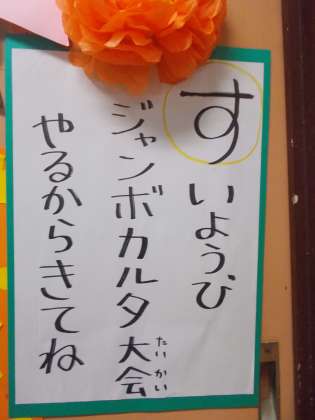 すいようび
ジャンボカルタ大会
たいかい
やるからきてね